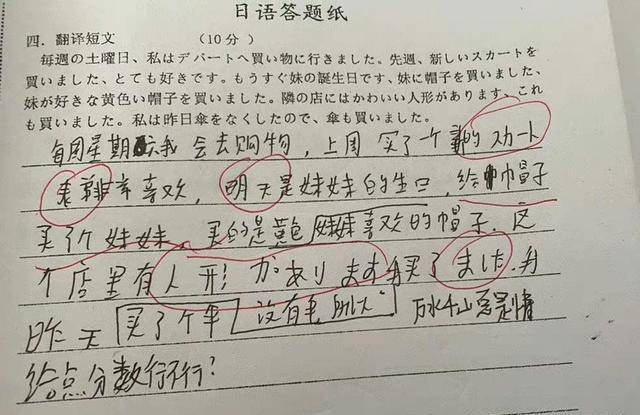 日语答题纸
四．翻译短文 （10分）
毎週の土曜日、私はデパートへ買い物に行きました。先週、新しいスカートを
買いました、とても好きです。もうすぐ妹の誕生日です、妹に帽子を買いました、
妹が好きな黄色い帽子を買いました。隣の店にはかわいい人形があります、これ
も買いました。私は昨日傘をなくしたので、傘も買いました。
每周星期 我会去购物，上周买了一个 的スカート
非常喜欢，明天是妹妹的生日，给 帽子
买了个妹妹，买的是黄色妹妹喜欢的帽子．这
个店里有人形かあります 买了ました．我
昨天买了个伞没有 万水千山总是情
给点分数行不行？